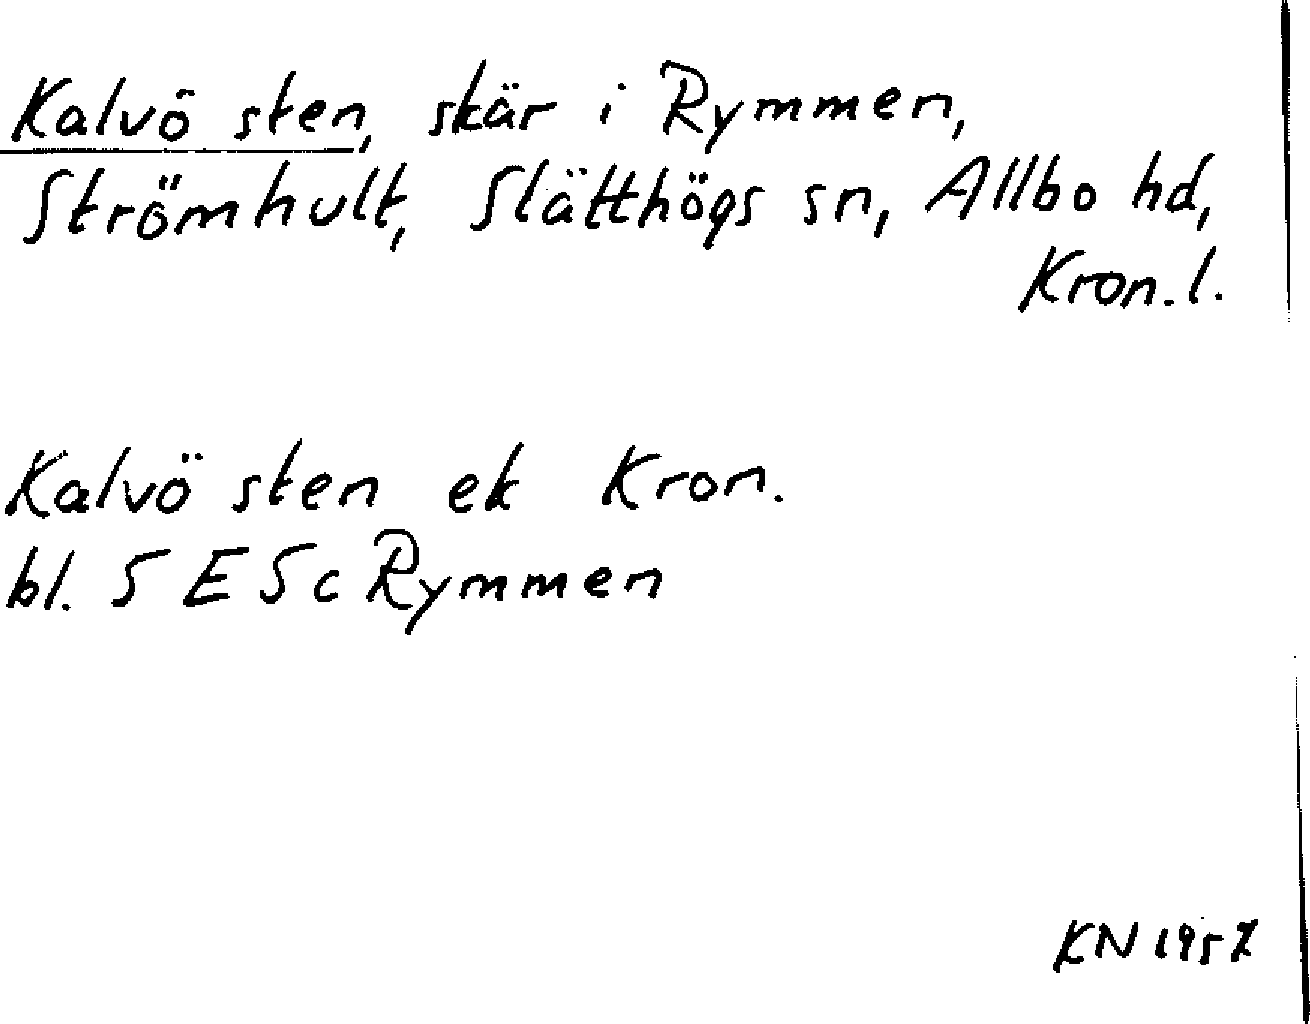 Kalvö sten, skär i Rymmen,
Strömhult, Slätthögs sn, Allbo hd,
Kron. l.
Kalvö sten ek Kron.
bl. 5 E S c Rymmen
KN 1957